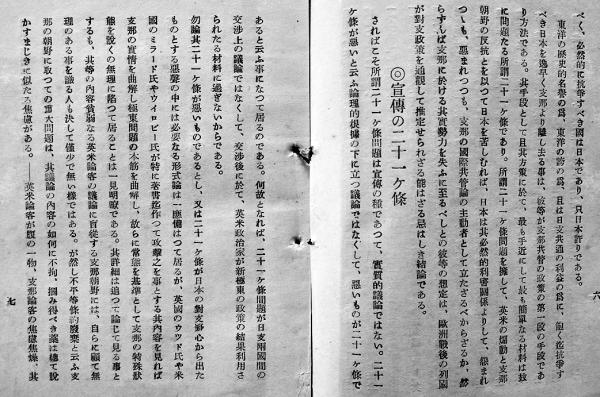 べく、必然的に抗爭すべき國は日本であり、只日本許りである。
東洋の歴史的名譽の爲、東洋の誇の爲、且は日支共通の利益の爲に、飽く迄抗爭す
べき日本を逸早く支那より離し去る事は、彼等が支那共管の政策の第一段の手段であ
り方法である。其手段として且其方策に於て、最も手近にして最も簡單なる材料は玆
に問題たる所謂二十一ケ條であり。所謂二十一ケ條問題を擁して、英米の煽動と支那
朝野の反抗とを以つて日本を苦しむれば、日本は其必然的利害關係よりして、怨まれ
つゝも、惡まれつつも、支那の國際共管の主動者として立たざるべからざるか、然
らずんば支那に於ける其實勢力を失ふに至るべしとの彼等の想定は、歐洲戰後の列國
が對支政策を通觀して推定せられざる能はざる忌はしき結論である。
◎宣傳の二十一ケ條
さればこそ所謂二十一ケ條問題は宣傳の種であつて、實質的議論ではない。二十一
ケ條が惡いと云ふ論理的根據の下に立つ議論ではなくして、惡いものが二十一ケ條で
六
あると云ふ事になつて居るのである。何故となれば、二十一ケ條問題が日支兩國間の
交渉上の議論ではなくして、交渉後に於て、英米政治家が新極東の政策の結果利用さ
れたる材料に過ぎないからである。
勿論其二十一ケ條が惡いものであるとし、又は二十一ケ條が日本の對支野心から出た
ものとする惡聲の中には必要なる形式論は一應備はつて居るが、英國のウツド氏や米
國のミラード氏やウイロービー氏が特に著書迄作つて攻擊之を事とする其內容を見れば
支那の實情を曲解し極東問題の本筋を曲解し、故らに常態を基準として支那の特殊狀
態を說くの無理に陷つて居ることは一見明瞭である。其詳細は追つて論じて見る事と
するも、其等の內容貧弱なる英米論客の議論に盲從する支那朝野には、自らに顧て無
理のある事を識る人も決して僅少で無い樣ではある。が然し不平等條約廢棄と云ふ支
那の朝野に取つての重大問題は、其議論の內容の如何に不拘、摑み得べき藁は總て說
かすまじきに似たる焦慮がある。――英米論客が懷の一物、支那論客の焦慮焦燥、其
七